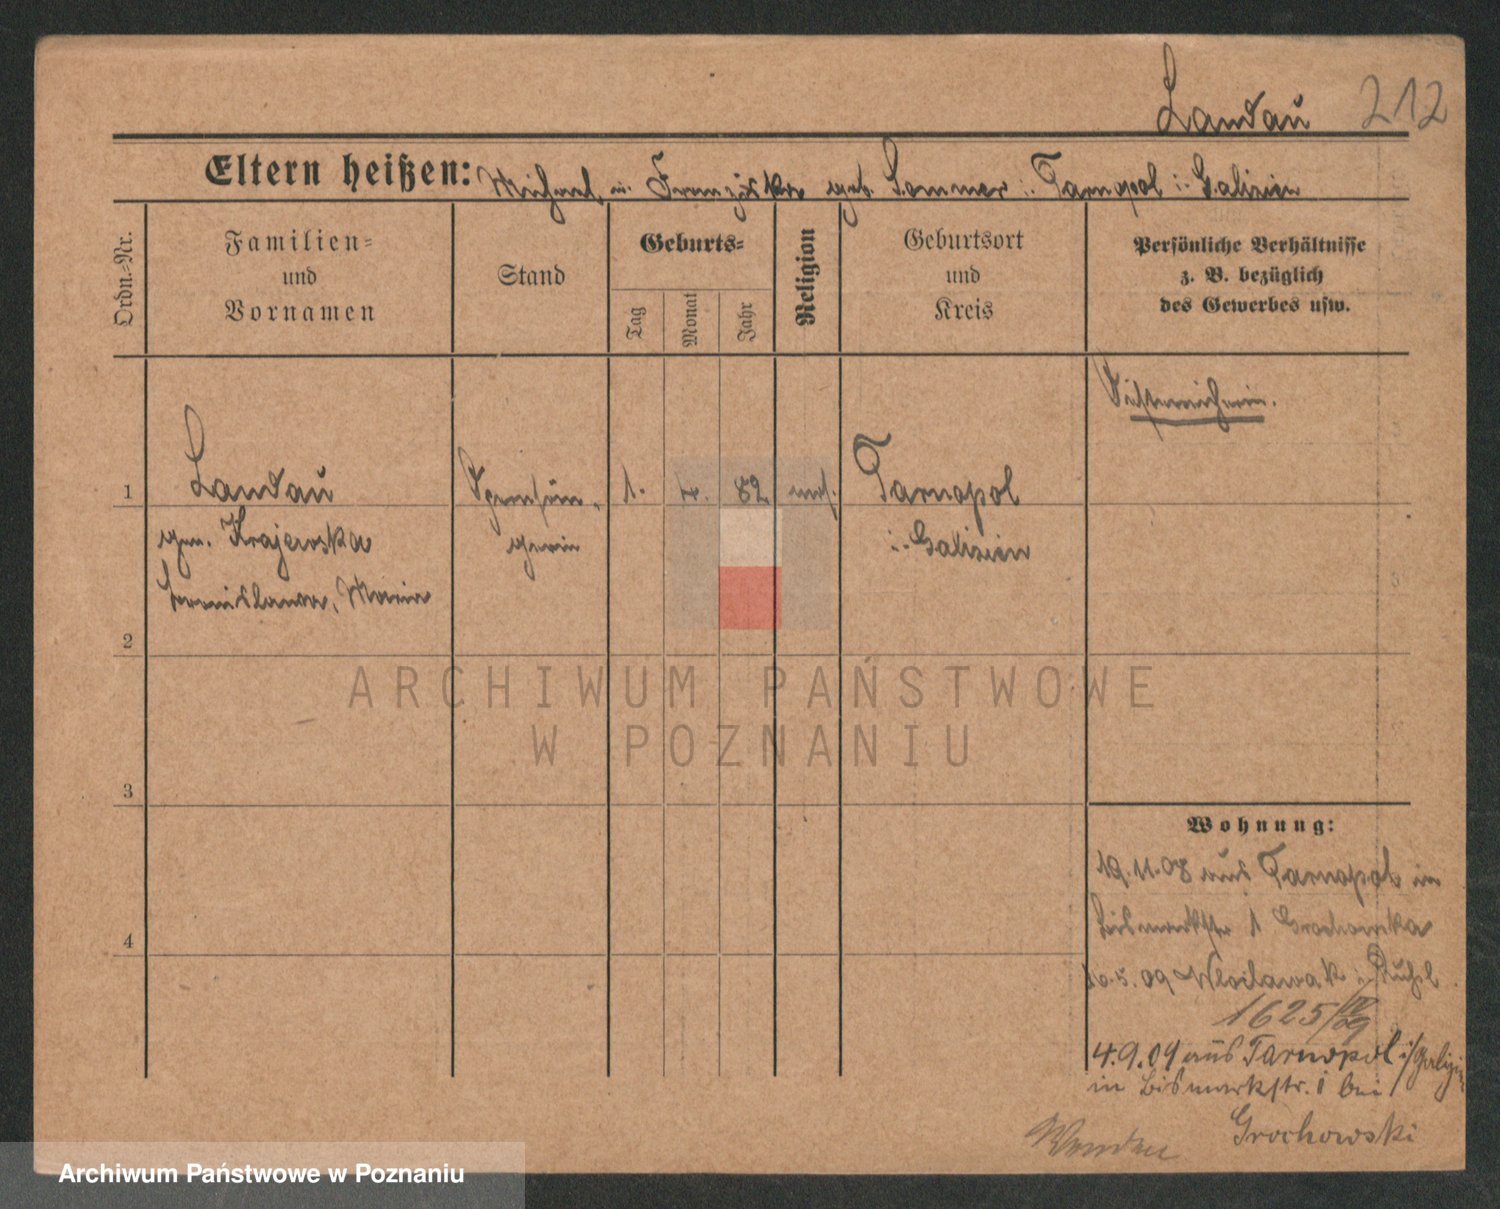 Landau 212
Eltern heißen: Michael u. Franziska geb. Sommer i. Tarnopol i. Galizien
Ordn.-Nr.
Familien-
und
Vornamen
Stand
Geburts-
Tag
Monat
Jahr
Religion
Geburtsort
und
Kreis
Persönliche Verhältnisse
z. B. bezüglich
des Gewerbes usw.
Österreicherin.
1 Landau 1. 82 Tarnopol
gen. Krajewska gerin i. Galizien
Bronislawa, Maria
2
ARCHIWUM PAŃSTWOWE
W POZNANIU
3
Wohnung:
19.11.08 aus Tarnopol in
Bismarckstr 1 Grochowska
4
5.09 Wloclawak i. Rußl.
1625/09
4.9.09 aus Tarnopol i/Galizien
in Bismarkstr. 1 bei
Grochowski
Archiwum Państwowe w Poznaniu